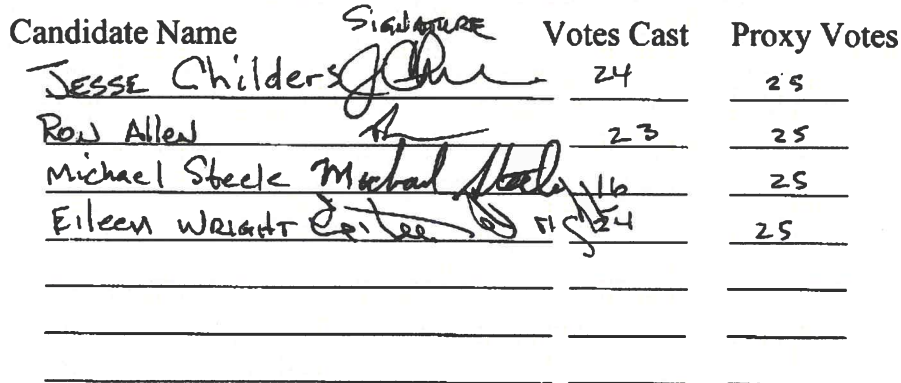 Candidate Name SIGNATURE Votes Cast Proxy Votes
JESSE Childers 24 25
RON Allen 23 25
Michael Steele Michael Steele 16 25
Eileen WRIGHT Eileen Wright 24 25